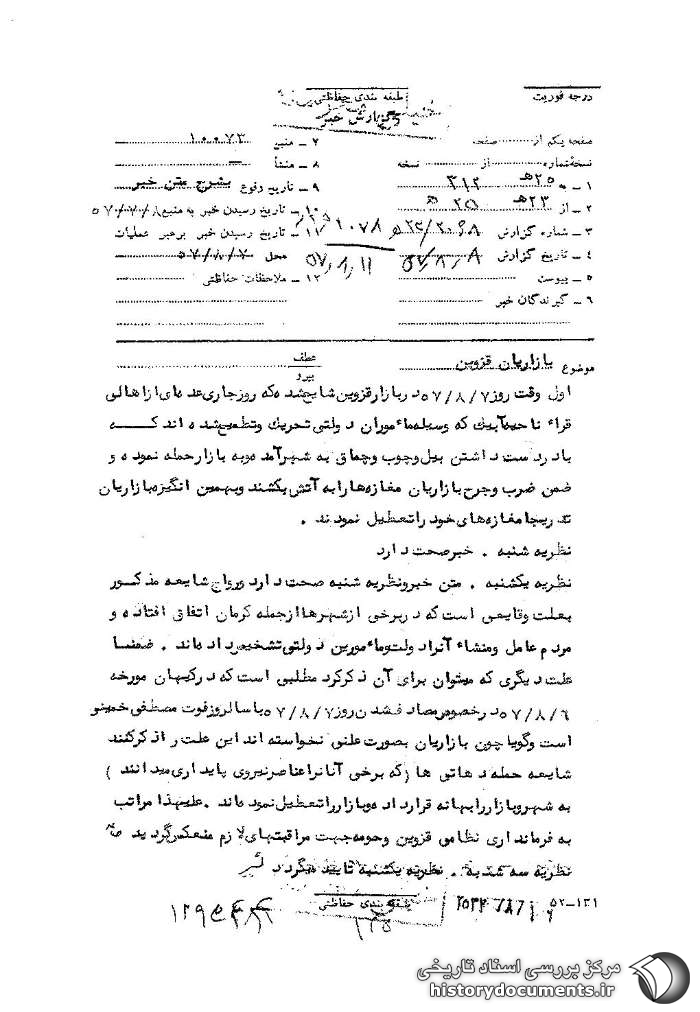 درجه فوریت
طبقه بندی حفاظتی
گزارش خبر
صفحه یکم از صفحه
نسخه شماره از نسخه
۱ ـ به ۲۵۰ هـ ۳۱۲
۲ ـ از ۲۳ هـ
۳ ـ شماره گزارش
۴ ـ تاریخ گزارش ۵۷/۸/۸
۵ ـ پیوست
۶ ـ گیرندگان خبر
۷ ـ منبع ۱۰۰۷۳
۸ ـ منشأ ـ
۹ ـ تاریخ وقوع بشرح متن خبر
۱۰ ـ تاریخ رسیدن خبر به منبع
۱۱ ـ تاریخ رسیدن خبر برهبر عملیات
محل ۵۷/۸/۷
۱۲ ـ ملاحظات حفاظتی
۵۷/۸/۱۱
موضوع بازاریان قزوین
عطف
پیرو
اول وقت روز ۵۷/۸/۷ در بازار قزوین شایع شده که روز جاری عده ای از اهالی
قراء ناحیه آبیک که وسیله مأموران دولتی تحریک و تطمیع شده اند کــه
با در دست داشتن بیل و چوب و چماق به شهر آمده و به بازار حمله نموده و
ضمن ضرب و جرح بازاریان مغازه ها را به آتش بکشند و بهمین انگیزه بازاریان
تدریجا مغازه های خود را تعطیل نمودند .
نظریه شنبه . خبر صحت دارد
نظریه یکشنبه . متن خبر و نظریه شنبه صحت دارد و رواج شایعه مذکـور
بعلت وقایعی است که در برخی از شهرها از جمله کرمان اتفاق افتاده و
مردم عامل و منشاء آنرا دولت و مأمورین دولتی تشخیص داده اند . ضمنـا
علت دیگری که میتوان برای آن ذکر کرد مطلبی است که در کیهان مورخه
۵۷/۸/۶ در خصوص مصادف شدن روز ۵۷/۸/۷ با سالروز فوت مصطفی خمینی
است و گویا چون بازاریان بصورت علنی نخواسته اند این علت را ذکر کنند
شایعه حمله دهاتی ها (که برخی آنانرا عناصر نیروی پایداری میدانند )
به شهر و بازار را بهانه قرار داده و بازار را تعطیل نموده اند . علیهذا مراتب
به فرمانداری نظامی قزوین و حومه جهت مراقبتهای لازم منعکس گردید
نظریه سه شنبه . نظریه یکشنبه تایید میگردد
طبقه بندی حفاظتی
۵۲-۱۳۱
مرکز بررسی اسناد تاریخی
historydocuments.ir